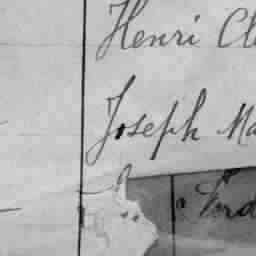 Henri Cl
Joseph Ma